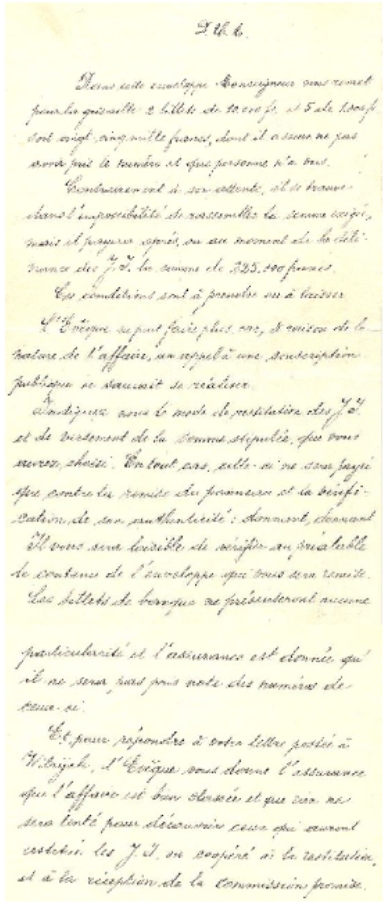 D.U.A.
Dans cette enveloppe Monseigneur vous remet
pour la grisaille 2 billets de 10.000 fr. et 5 de 1.000 fr
soit vingt cinq mille francs, dont il assure ne pas
avoir pris le numéro et que personne n'a vus.
Contrairement à son attente, il se trouve
dans l'impossibilité de rassembler la somme exigée,
mais il payera après, ou au moment de la déli-
vrance des J.I. la somme de 225.000 francs.
Ces conditions sont à prendre ou à laisser
L'Evêque ne peut faire plus car, à raison de la
nature de l'affaire, un appel à une souscription
publique ne saurait se réaliser.
Indiquez nous le mode de restitution des J.I.
et de versement de la somme stipulée, que vous
aurez choisi. En tout cas, celle-ci ne sera payée
que contre la remise du panneau et la vérifi-
cation de son authenticité : donnant, donnant
Il vous sera loisible de vérifier au préalable
le contenu de l'enveloppe qui vous sera remise.
Les billets de banque ne présenteront aucune
particularité et l'assurance est donnée qu'
il ne sera pas pris note des numéros de
ceux-ci.
Et pour répondre à votre lettre postée à
Wilrijk, l'Evêque vous donne l'assurance
que l'affaire est bien classée et que rien ne
sera tenté pour découvrir ceux qui auront
restitué les J.I. ou coopéré à la restitution,
et à la réception de la commission promise.